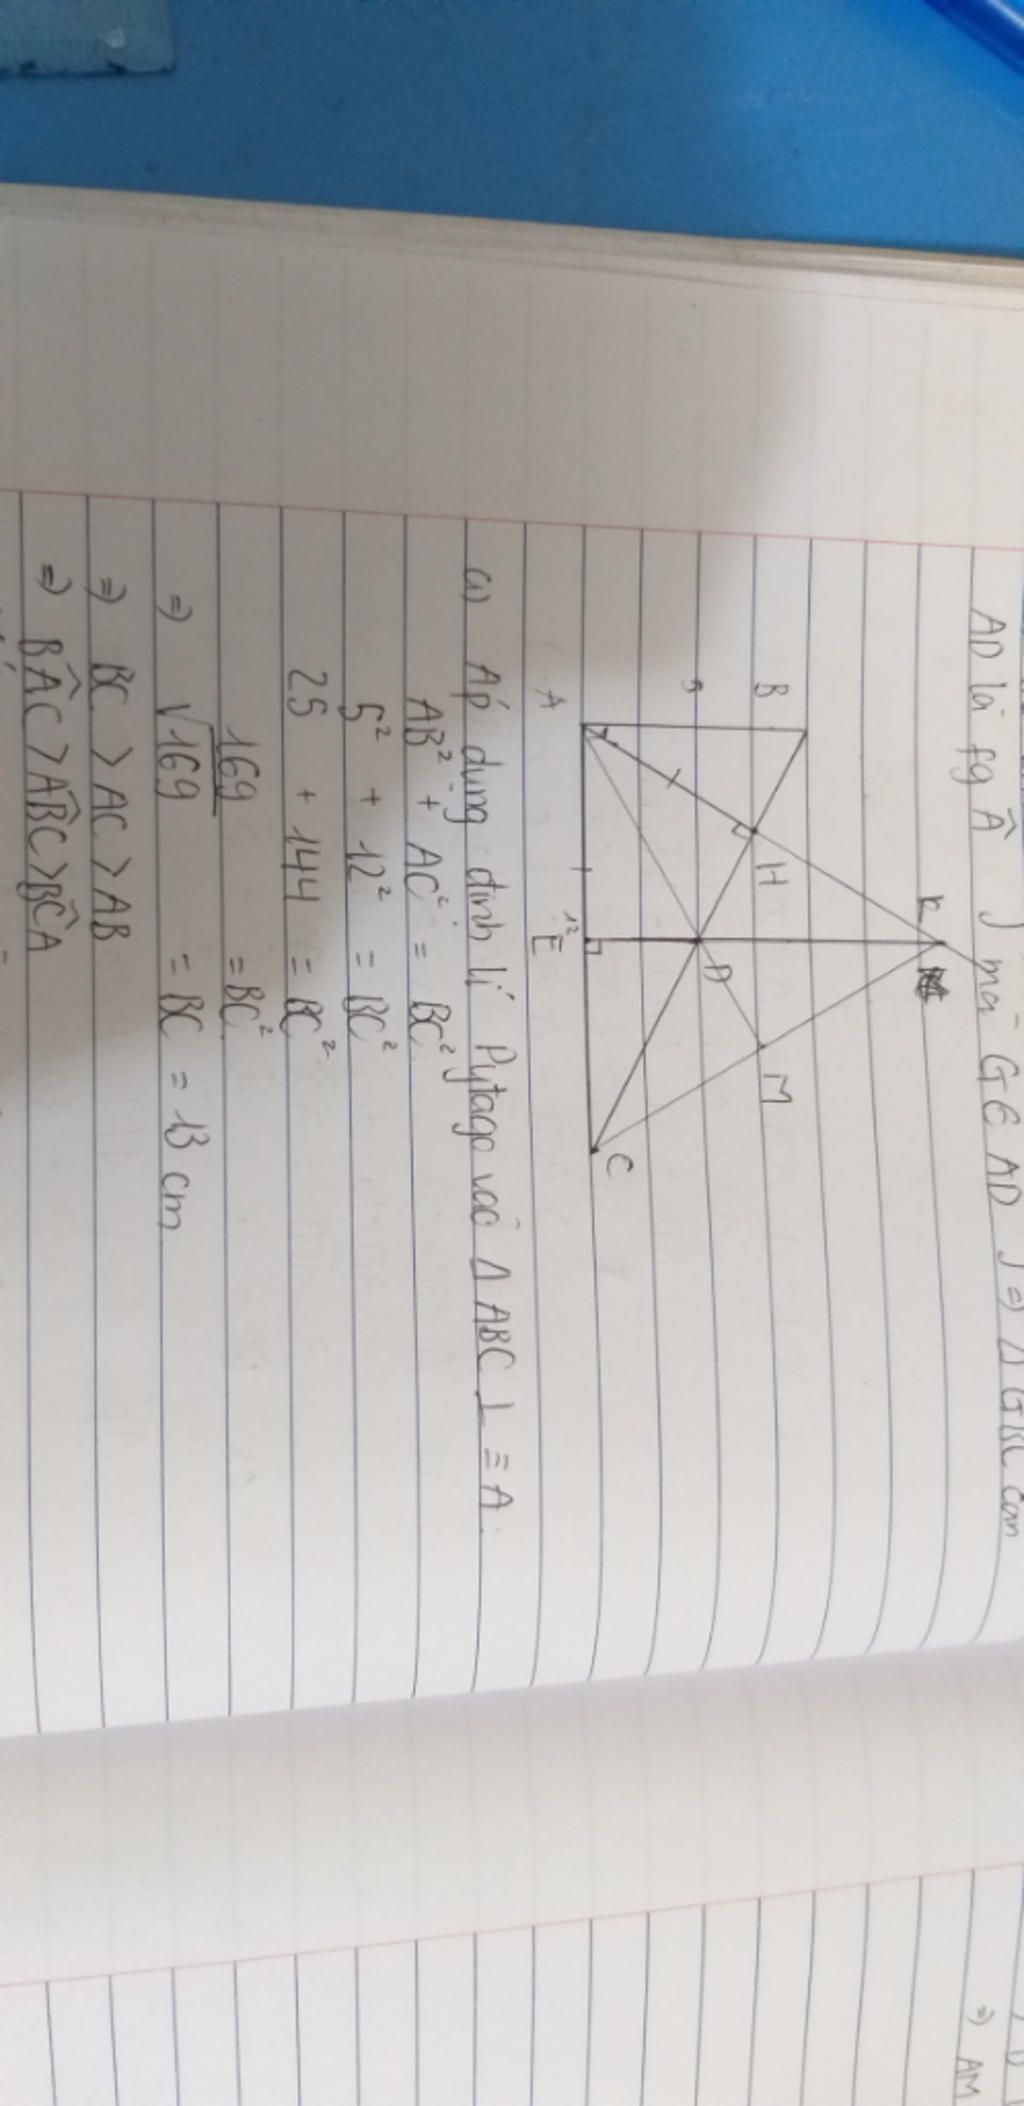 AD là fg Â mà G∈ AD ⇒ Δ GBC cân
K
B
H
M
5
D
C
12
E
A
a) Áp dụng định lí Pytago vào Δ ABC ⊥ = A.
AB² + AC² = BC²
5² + 12² = BC²
25 + 144 = BC²
169 = BC²
⇒ √169 = BC = 13 cm
⇒ BC > AC > AB
⇒ BÂC > AB̂C > BĈA
⇒ AM